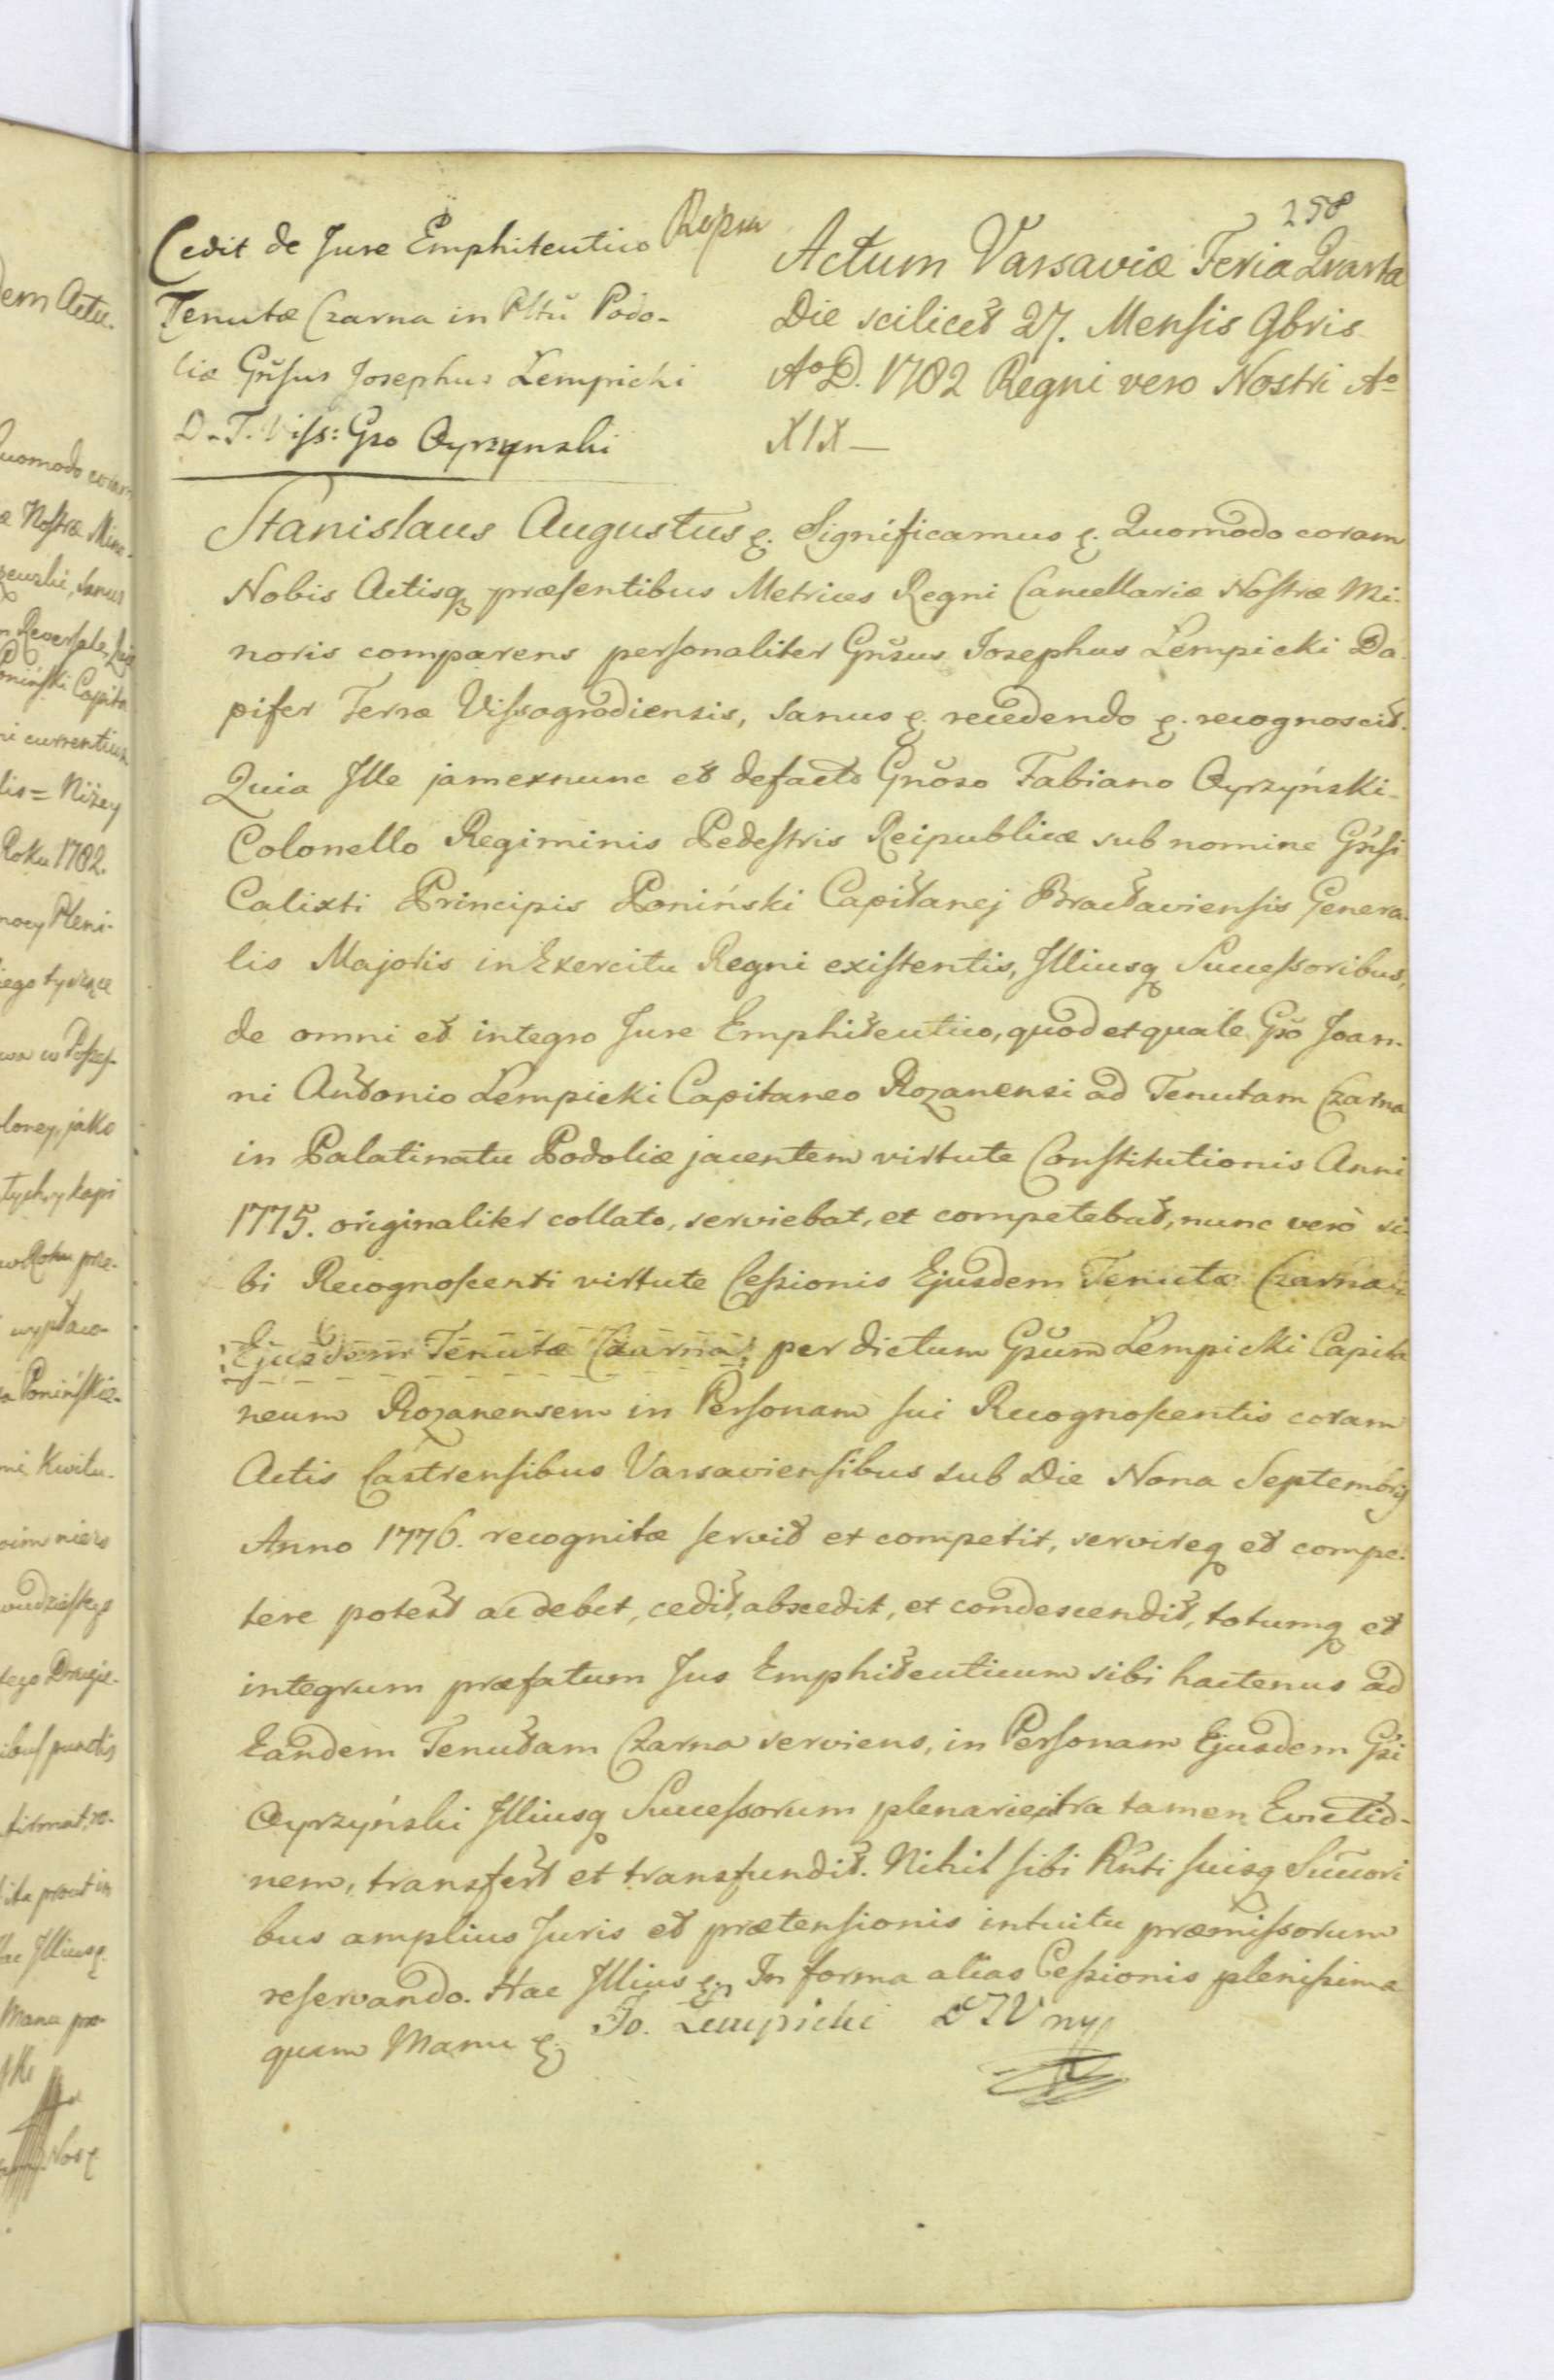 258
Cedit de Jure Emphiteutico
Tenutæ Czarna in Pltũ Podo-
liæ Gñsus Josephus Lempicki
D. T. Viss: Gso Oyrzynski
Actum Varsaviæ Feria Quarta
Die scilicet 27. Mensis 9bris
Ao D. 1782 Regni vero Nostri Ao
XIX—
Stanislaus Augustus &. Significamus &. Quomodo coram
Nobis Actisq præsentibus Metrices Regni Cancellariæ Nostræ Mi-
noris comparens personaliter Gñsus Josephus Lempicki Da-
pifer Terræ Vissogrodiensis, sanus &. recedendo &. recognoscit.
Quia Ille jam exnunc et defacto Gñoso Fabiano Oyrzyński
Colonello Regiminis Pedestris Reipublicæ sub nomine Gñsi
Calixti Principis Poniński Capitanej Bractaviensis Genera-
lis Majoris in Exercitu Regni existentis, Illiusq Successoribus,
de omni et integro Jure Emphiteutico, quod et quale Gso Joan-
ni Antonio Lempicki Capitaneo Rozanensi ad Tenutam Czarna
in Palatinatu Podoliæ jacentem virtute Constitutionis Anni
1775. originaliter collato, serviebat, et competebat, nunc verò si-
bi Recognoscenti virtute Cessionis Ejusdem Tenutæ Czarna
Ejusdem Tenutæ Czarna, per dictum Gsum Lempicki Capita
neum Rozanensem in Personam sui Recognoscentis coram
Actis Castrensibus Varsaviensibus sub Die Nona Septembris
Anno 1776. recognitæ servit et competit, servireq et compe-
tere potest ac debet, cedit, abscedit, et condescendit, totumq et
integrum præfatum Jus Emphiteuticum sibi hactenus ad
Eandem Tenutam Czarna serviens, in Personam Ejusdem Gsi
Oyrzyński Illiusq Successorum plenarie citra tamen Evictio-
nem, transfert et transfundit. Nihil sibi Rñti suisq Succori
bus amplius Juris et prætensionis intuitu præmissorum
reservando. Hac Illius &. In forma alias Cessionis plenissima
quam Manu &. Jo. Lempicki